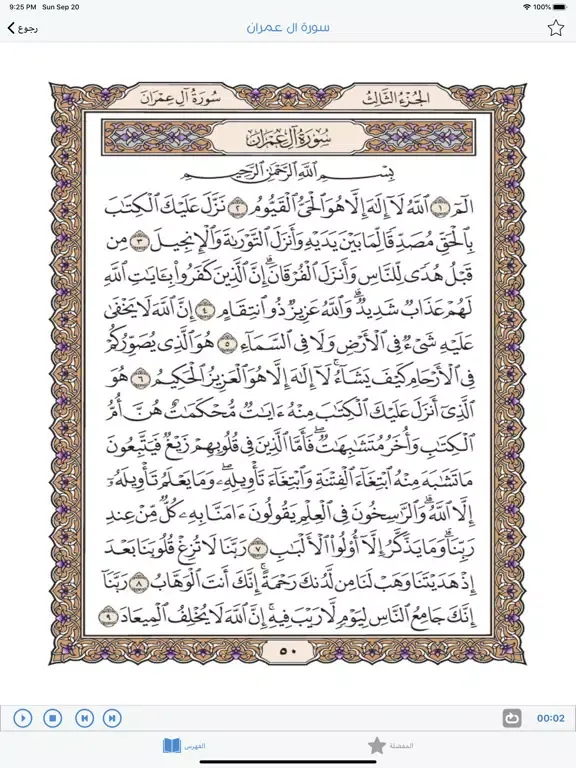 9:25 PM Sun Sep 20 100%
رجوع سورة آل عمران
الجُزْءُ الثَّالِثُ سُورَةُ آلِ عِمْرَانَ
سُورَةُ آلِ عِمْرَانَ
بِسْمِ ٱللَّهِ ٱلرَّحْمَٰنِ ٱلرَّحِيمِ
الٓمٓ ١ ٱللَّهُ لَآ إِلَٰهَ إِلَّا هُوَ ٱلْحَىُّ ٱلْقَيُّومُ ٢ نَزَّلَ عَلَيْكَ ٱلْكِتَٰبَ
بِٱلْحَقِّ مُصَدِّقًا لِّمَا بَيْنَ يَدَيْهِ وَأَنزَلَ ٱلتَّوْرَىٰةَ وَٱلْإِنجِيلَ ٣ مِن
قَبْلُ هُدًى لِّلنَّاسِ وَأَنزَلَ ٱلْفُرْقَانَۗ إِنَّ ٱلَّذِينَ كَفَرُوا۟ بِـَٔايَٰتِ ٱللَّهِ
لَهُمْ عَذَابٌ شَدِيدٌۗ وَٱللَّهُ عَزِيزٌ ذُو ٱنتِقَامٍ ٤ إِنَّ ٱللَّهَ لَا يَخْفَىٰ
عَلَيْهِ شَىْءٌ فِى ٱلْأَرْضِ وَلَا فِى ٱلسَّمَآءِ ٥ هُوَ ٱلَّذِى يُصَوِّرُكُمْ
فِى ٱلْأَرْحَامِ كَيْفَ يَشَآءُۚ لَآ إِلَٰهَ إِلَّا هُوَ ٱلْعَزِيزُ ٱلْحَكِيمُ ٦ هُوَ
ٱلَّذِىٓ أَنزَلَ عَلَيْكَ ٱلْكِتَٰبَ مِنْهُ ءَايَٰتٌ مُّحْكَمَٰتٌ هُنَّ أُمُّ
ٱلْكِتَٰبِ وَأُخَرُ مُتَشَٰبِهَٰتٌۖ فَأَمَّا ٱلَّذِينَ فِى قُلُوبِهِمْ زَيْغٌ فَيَتَّبِعُونَ
مَا تَشَٰبَهَ مِنْهُ ٱبْتِغَآءَ ٱلْفِتْنَةِ وَٱبْتِغَآءَ تَأْوِيلِهِۦۗ وَمَا يَعْلَمُ تَأْوِيلَهُۥٓ
إِلَّا ٱللَّهُۗ وَٱلرَّٰسِخُونَ فِى ٱلْعِلْمِ يَقُولُونَ ءَامَنَّا بِهِۦ كُلٌّ مِّنْ عِندِ
رَبِّنَاۗ وَمَا يَذَّكَّرُ إِلَّآ أُو۟لُوا۟ ٱلْأَلْبَٰبِ ٧ رَبَّنَا لَا تُزِغْ قُلُوبَنَا بَعْدَ
إِذْ هَدَيْتَنَا وَهَبْ لَنَا مِن لَّدُنكَ رَحْمَةًۚ إِنَّكَ أَنتَ ٱلْوَهَّابُ ٨ رَبَّنَآ
إِنَّكَ جَامِعُ ٱلنَّاسِ لِيَوْمٍ لَّا رَيْبَ فِيهِۚ إِنَّ ٱللَّهَ لَا يُخْلِفُ ٱلْمِيعَادَ ٩
٥٠
00:02
الفهرس المفضلة